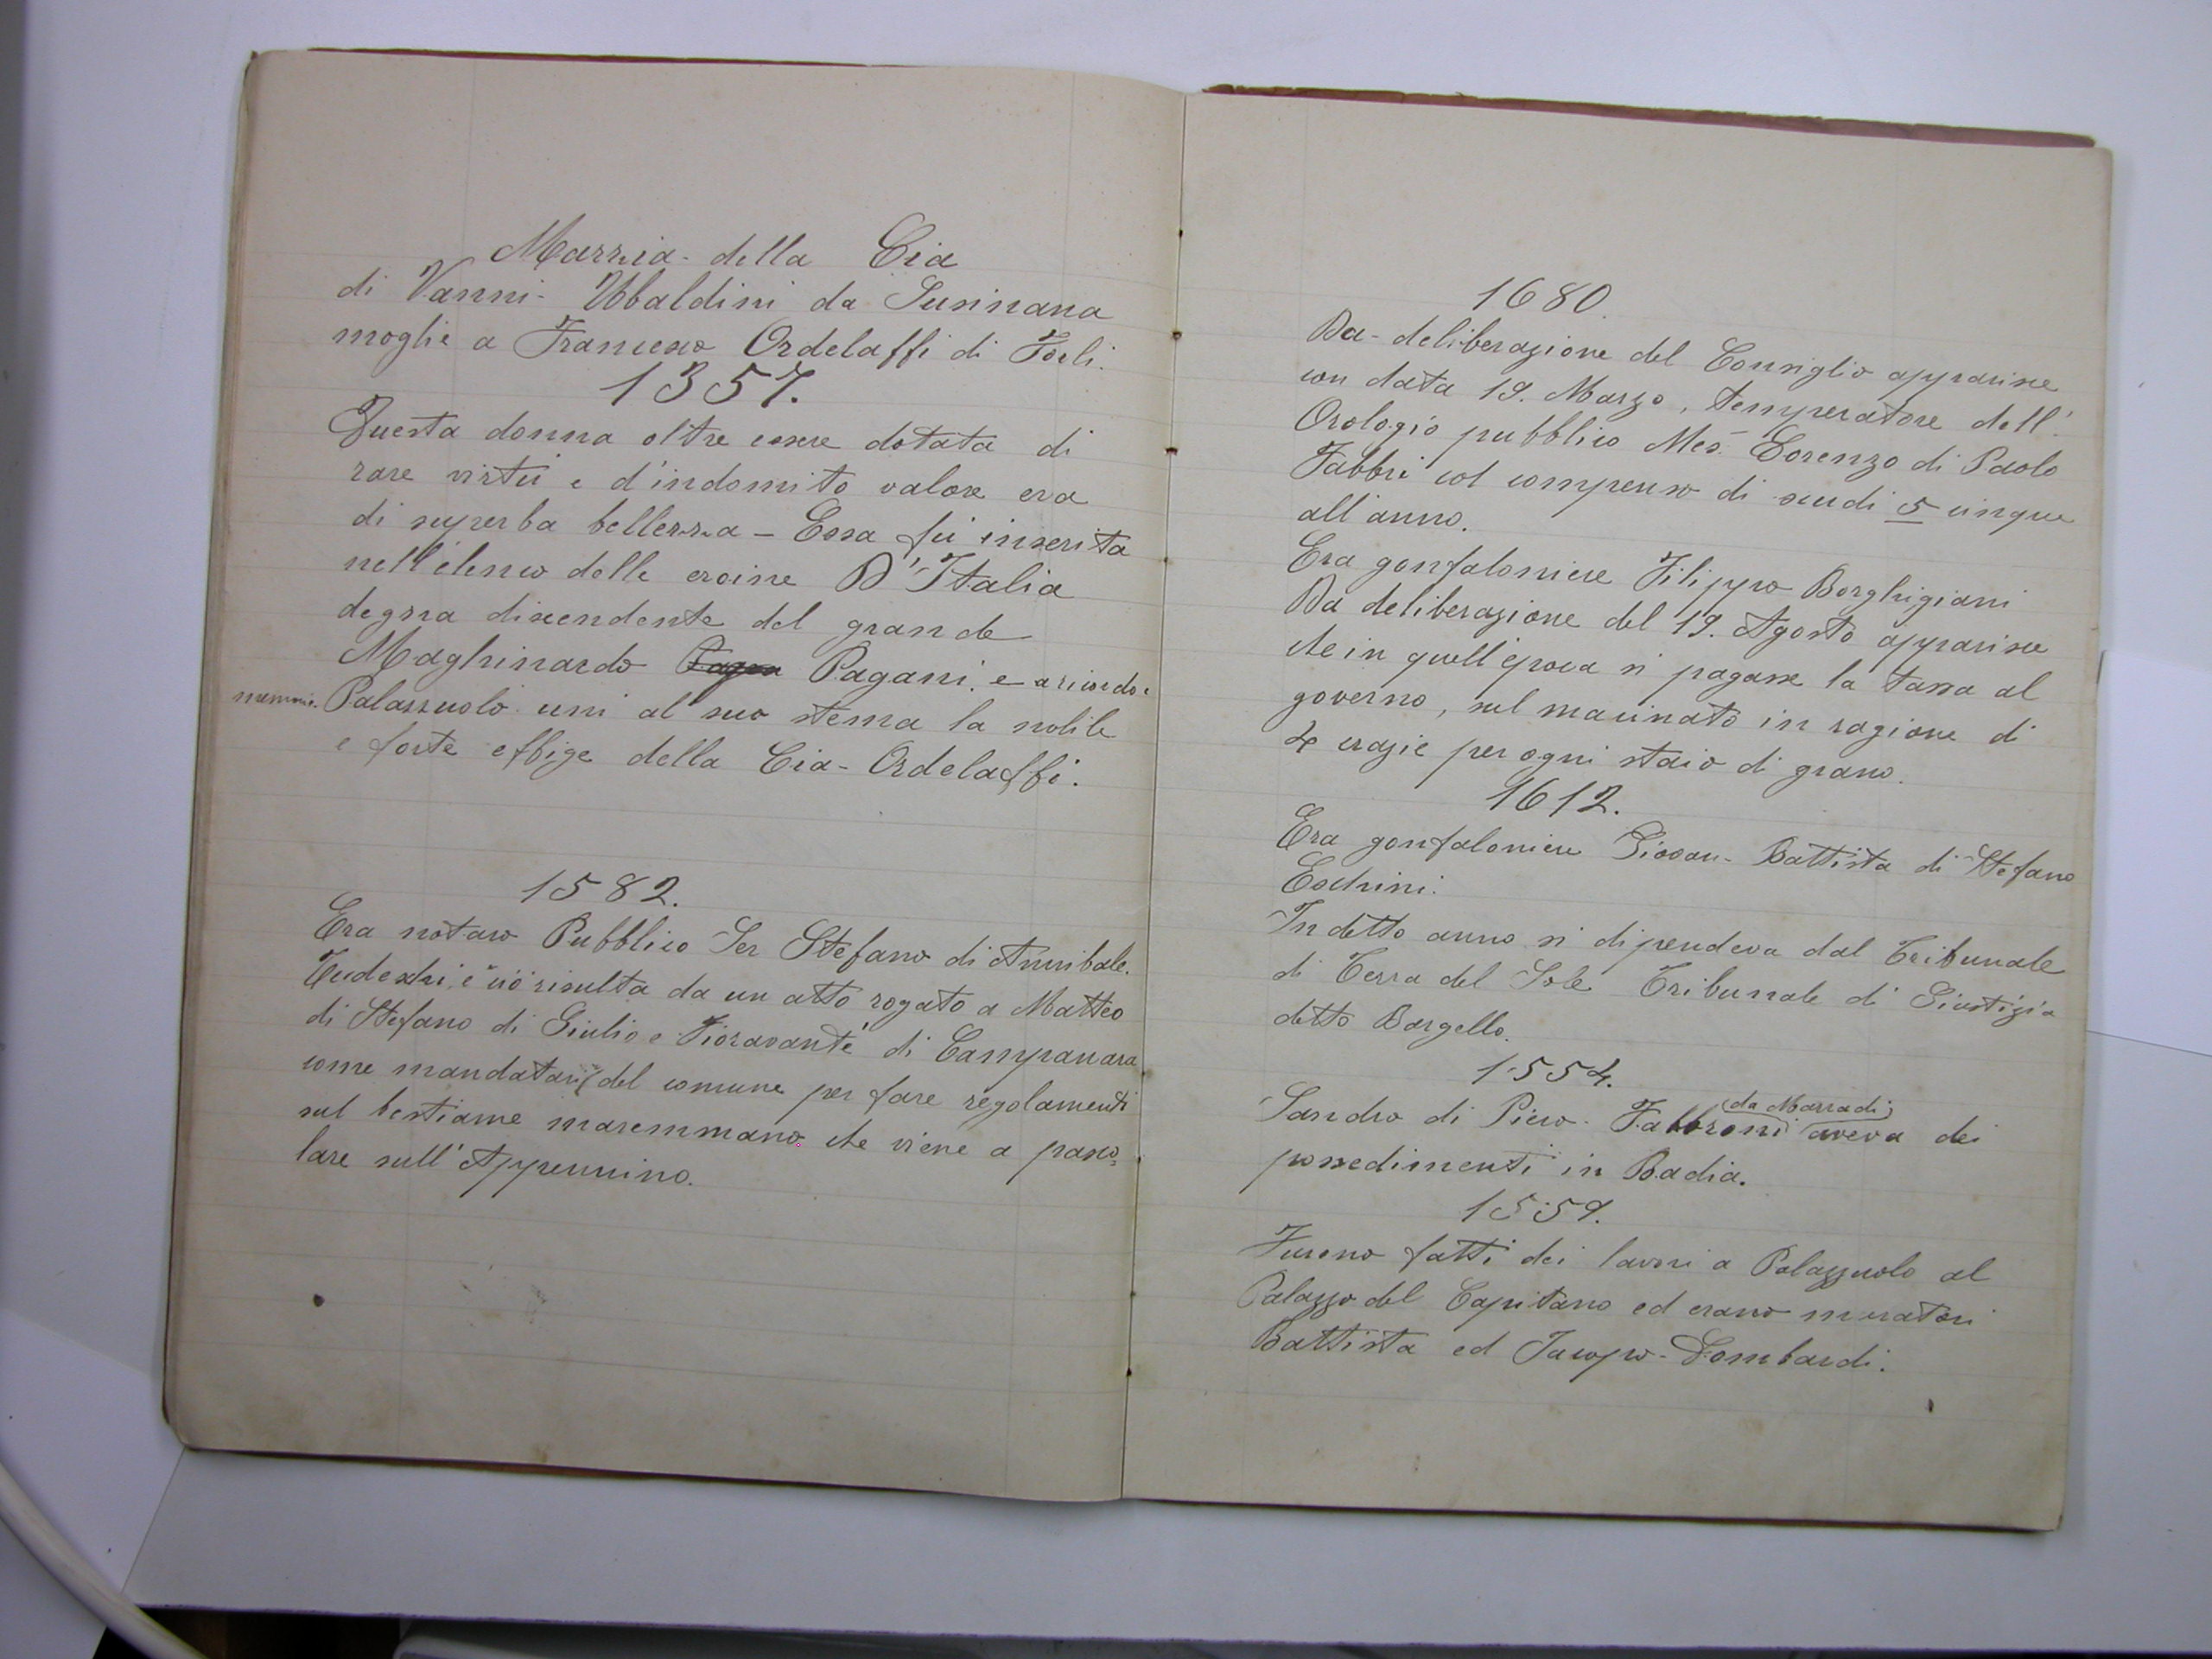 Marzia della Cia
di Vanni Ubaldini da Susinana
moglie a Francesco Ordelaffi di Forlì.
1357.
Questa donna oltre essere dotata di
rare virtù e d'indomito valore era
di superba bellezza - Essa fù inserita
nell'elenco delle eroine D'Italia
degna discendente del grande
Maghinardo Pagani. e a ricordo e
memoria Palazzuolo unì al suo stema la nobile
e forte effige della Cia - Ordelaffi.
1582.
Era notaro Pubblico Ser Stefano di Annibale
Tudeschi, e ciò risulta da un atto rogato a Matteo
di Stefano di Giulio e Fioravante di Campanara
come mandatari del comune per fare regolamenti
sul bestiame maremmano che viene a pasco=
lare sull'Appennino.
1680.
Da deliberazione del Consiglio apparisce
con data 19. Marzo, temperatore dell'
Orologio pubblico Mes. Lorenzo di Paolo
Fabbri col compenso di scudi 5 cinque
all'anno.
Era gonfaloniere Filippo Borghigiani
Da deliberazione del 19. Agosto apparisce
che in quell'epoca si pagasse la tassa al
governo, sul macinato in ragione di
4 crazie per ogni staio di grano.
1612.
Era gonfaloniere Giovan - Battista di Stefano
In detto anno si dipendeva dal Tribunale
di Terra del Sole Tribunale di Giustizia
detto Bargello.
1554.
Sandro di Piero - Fabbroni (da Marradi) aveva dei
possedimenti in Badia.
1559.
Furono fatti dei lavori a Palazzuolo al
Palazzo del Capitano ed erano muratori
Battista ed Jacopo - Lombardi.